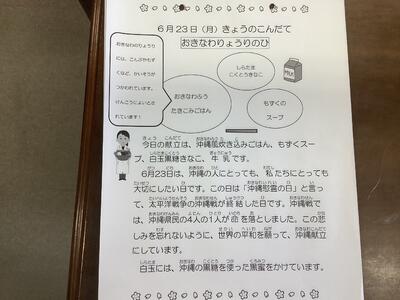 6月23日（月）きょうのこんだて
おきなわりょうりのひ
おきなわのりょうり
には、こんぶやもず
くなど、かいそうが
つかわれています。
けんこうによいとさ
れています！
しらたま
こくとうきなこ
MILK
おきなわふう
たきこみごはん
もずくの
スープ
今日の献立は、沖縄風炊き込みごはん、もずくスー
プ、白玉黒糖きなこ、牛乳です。
6月23日は、沖縄の人にとっても、私たちにとっても
大切にしたい日です。この日は「沖縄慰霊の日」と言っ
て、太平洋戦争の沖縄戦が終結した日です。沖縄戦で
は、沖縄県民の4人の1人が命を落としました。この悲
しみを忘れないように、世界の平和を願って、沖縄献立
にしています。
白玉には、沖縄の黒糖を使った黒蜜をかけています。